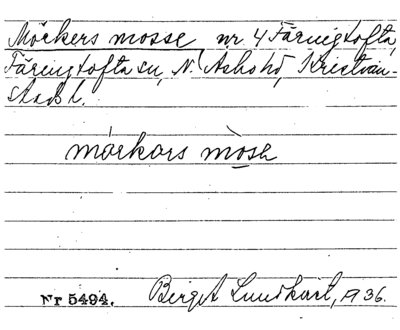 Mörkers mosse nr 4 Färingtofta,
Färingtofta sn, N. Åsbo hd, Kristian-
stads l.
mórkars mòsa
Nr 5494. Birgit Lundkvist, 1936.